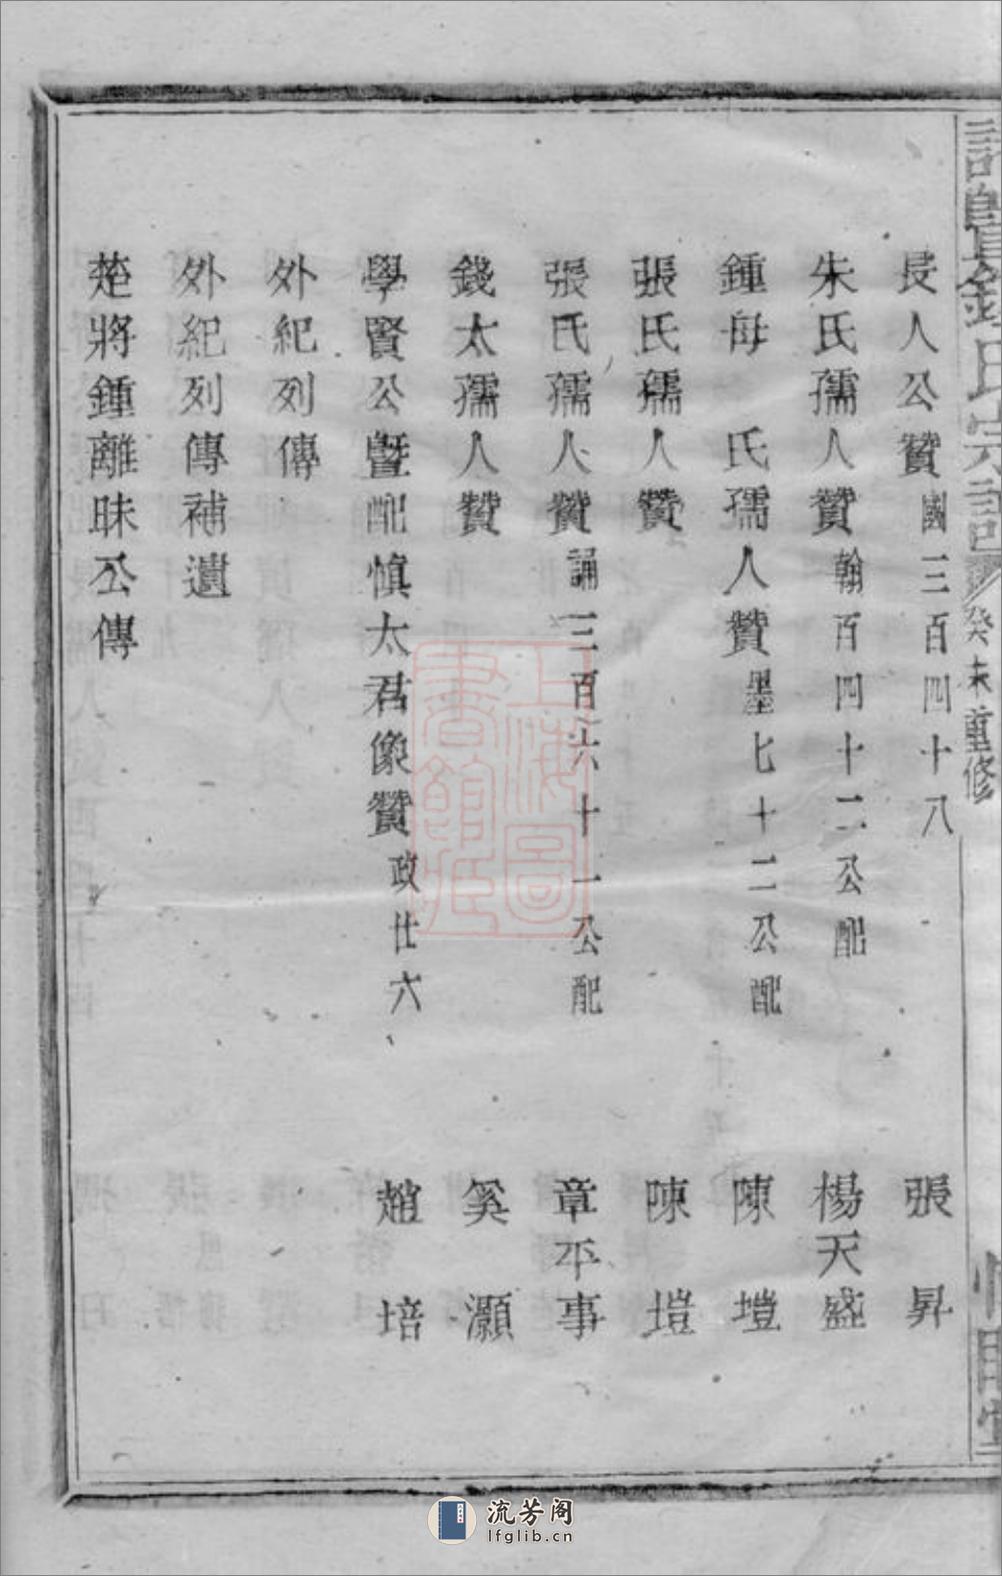 鍾氏宗譜 癸未重修
長人公贊 國三百四十八 張昇
朱氏孺人贊 翰百四十二公配 楊天盛
鍾母 氏孺人贊 墨七十二公配 陳塏
張氏孺人贊 陳塏
張氏孺人贊 誦三百六十一公配 章平事
錢太孺人贊 奚灝
學賢公暨配慎太君像贊 政廿六 趙培
外紀列傳
外紀列傳補遺
楚將鍾離昧公傳
上海圖書館藏
流芳阁
lfglib.cn